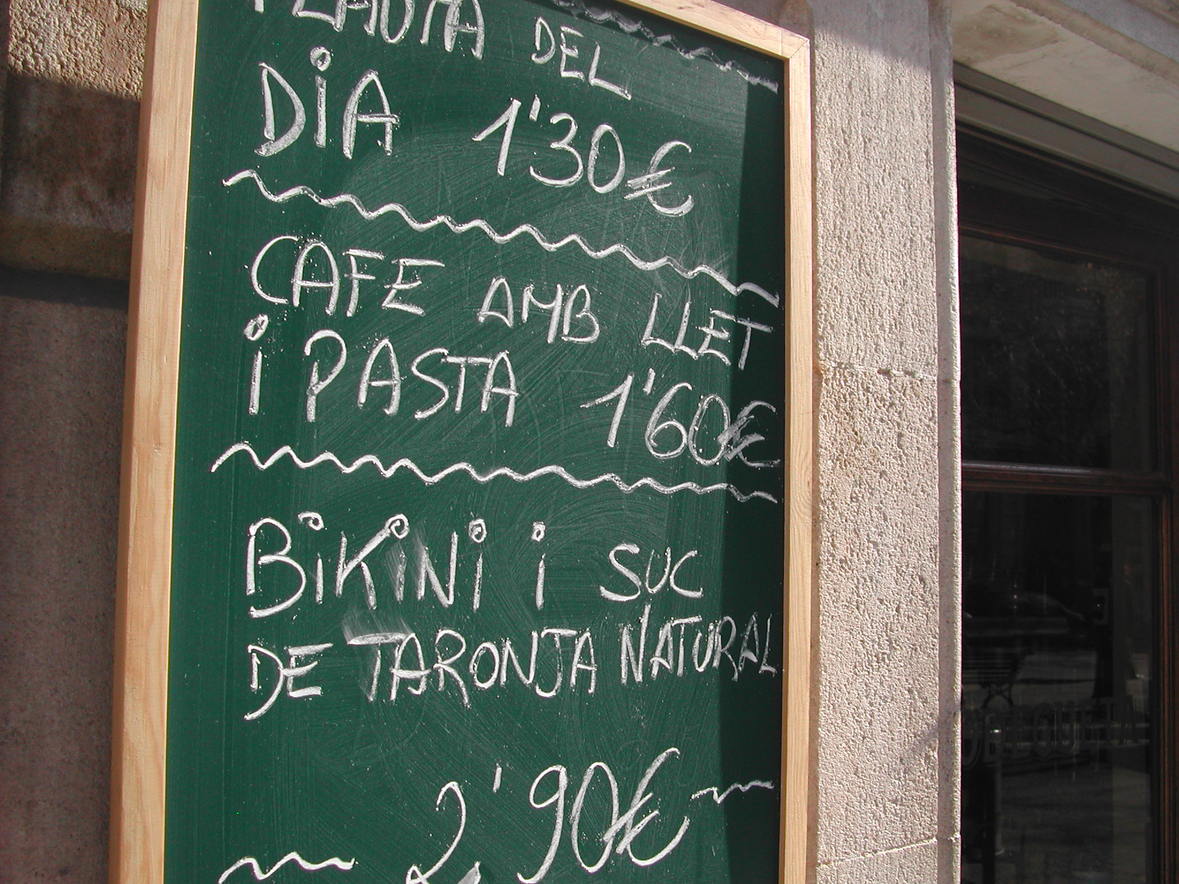 FLAUTA DEL
DIA 1'30€
CAFE AMB LLET
i PASTA 1'60€
BiKiNi i SUC
DE TARONJA NATURAL
2'90€